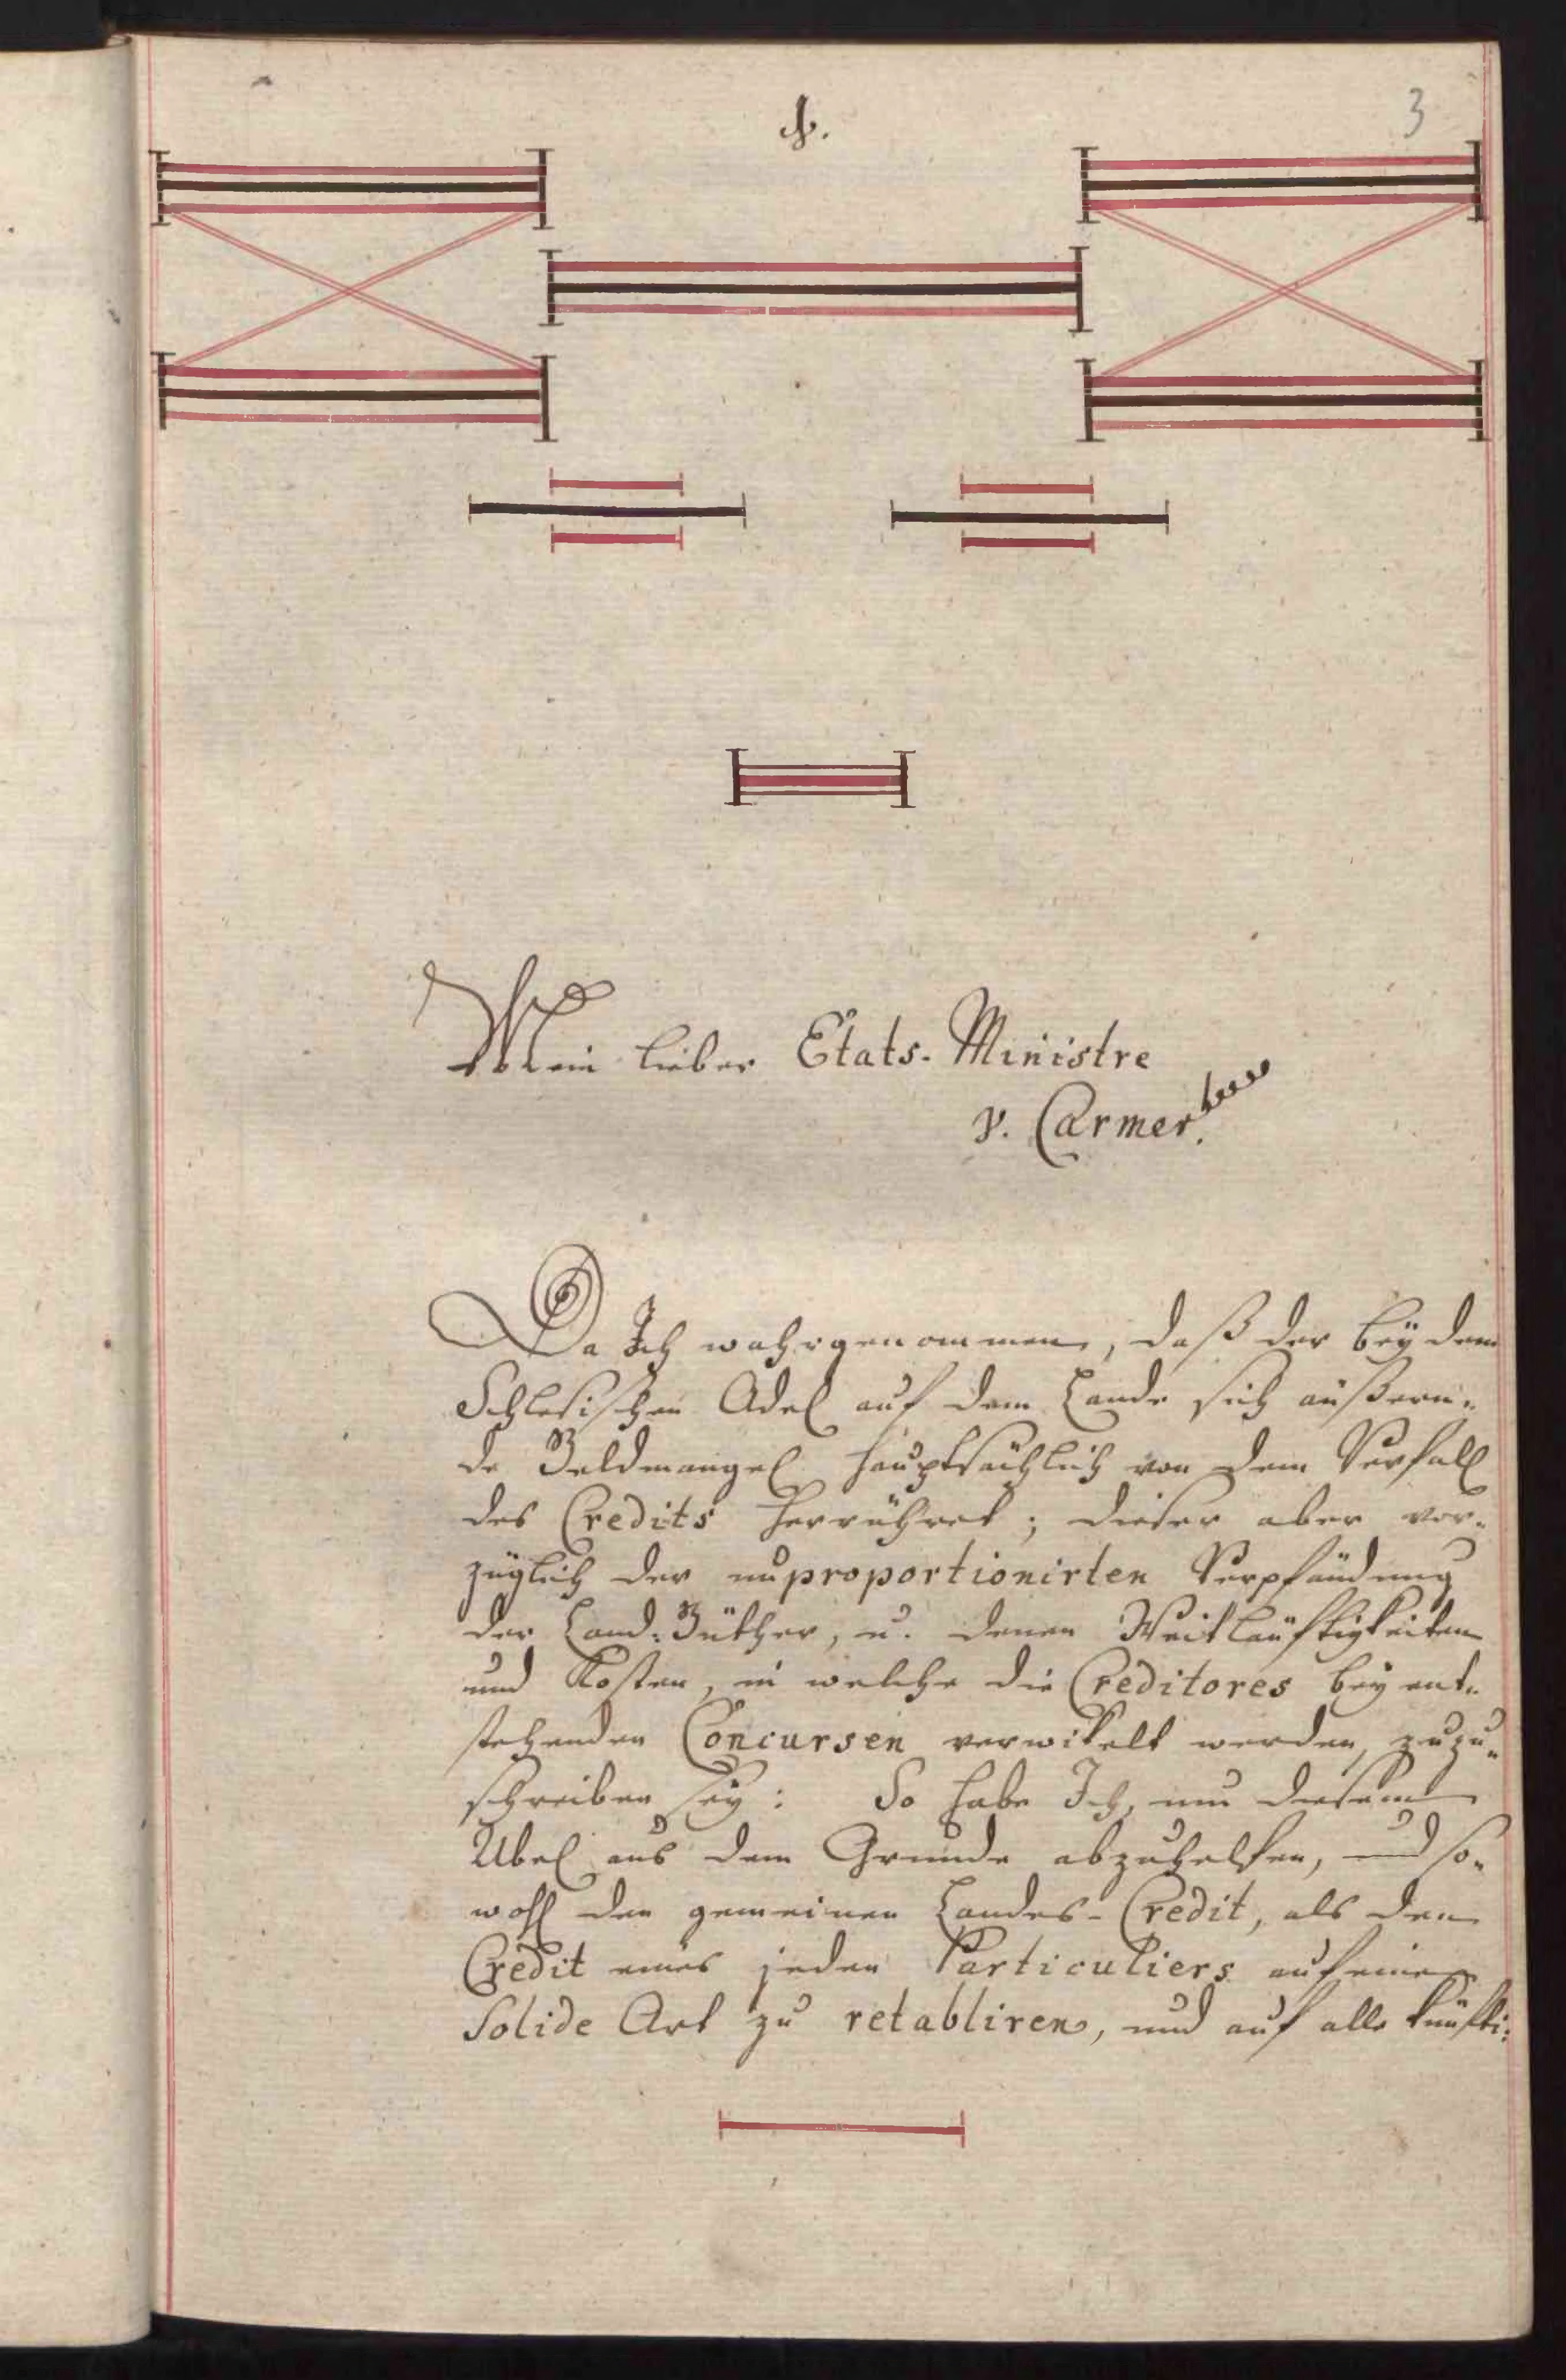 3
Mein lieber Etats-Ministre
v. Carmer.
Da Ich wahrgenommen, daß der bey dem
Schlesischen Adel auf dem Lande sich äußern-
de Geldmangel hauptsächlich von dem Verfall
des Credits herrühret; dieser aber vor-
züglich der unproportionirten Verpfändung
der Land-Güther, u. denen Weitläuftigkeiten
und Kosten, in welche die Creditores bey ent-
stehenden Concursen verwikelt werden, zuzu-
schreiben sey: So habe Ich, um diesem
Übel aus dem Grunde abzuhelfen, und so-
wohl den gemeinen Landes-Credit, als den
Credit eines jeden Particuliers auf eine
Solide Art zu retabliren, und auf alle künfti-